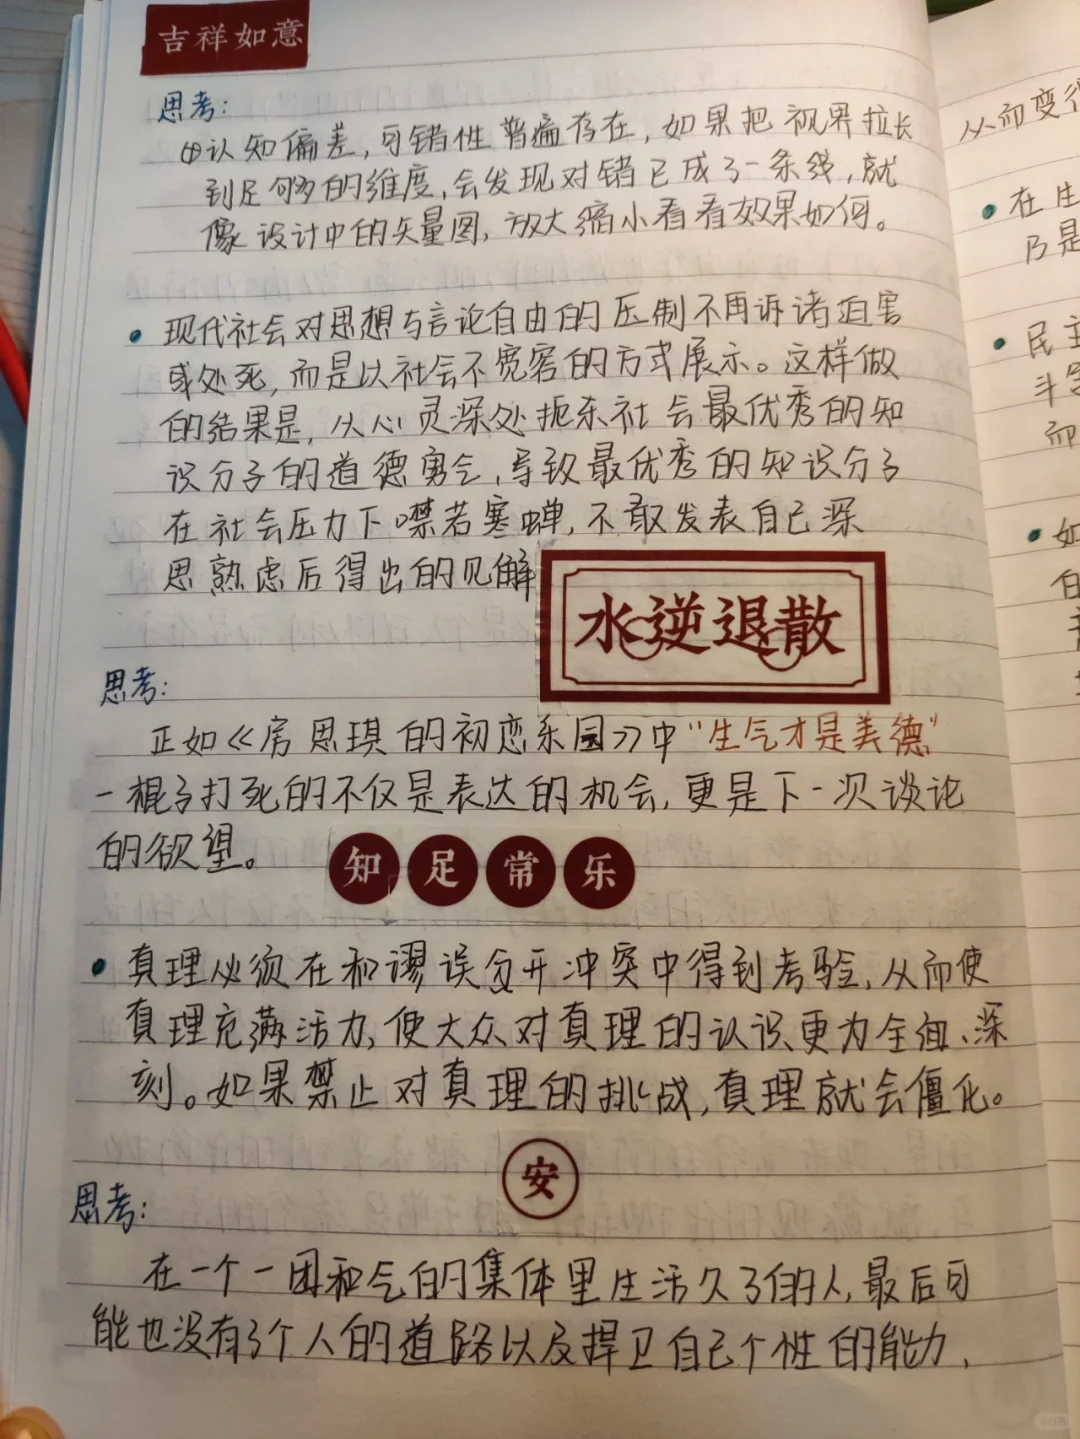 吉祥如意
思考：
①认知偏差，可错性普遍存在，如果把视界拉长
到足够的维度，会发现对错已成了一条线，就
像设计中的矢量图，放大缩小看看效果如何。
• 现代社会对思想与言论自由的压制不再诉诸迫害
或处死，而是以社会不宽容的方式展示。这样做
的结果是，从心灵深处扼杀社会最优秀的知
识分子的道德勇气，导致最优秀的知识分子
在社会压力下噤若寒蝉，不敢发表自己深
思熟虑后得出的见解
水逆退散
思考：
正如《房思琪的初恋乐园》中“生气才是美德”
一棍子打死的不仅是表达的机会，更是下一次谈论
的欲望。
知足常乐
• 真理必须在和谬误公开冲突中得到考验，从而使
真理充满活力，使大众对真理的认识更为全面、深
刻。如果禁止对真理的挑战，真理就会僵化。
安
思考：
在一个一团和气的集体里生活久了的人，最后可
能也没有了个人的道路以及捍卫自己个性的能力，
从而变得
• 在生
乃是
• 民主
而
• 如
小红书